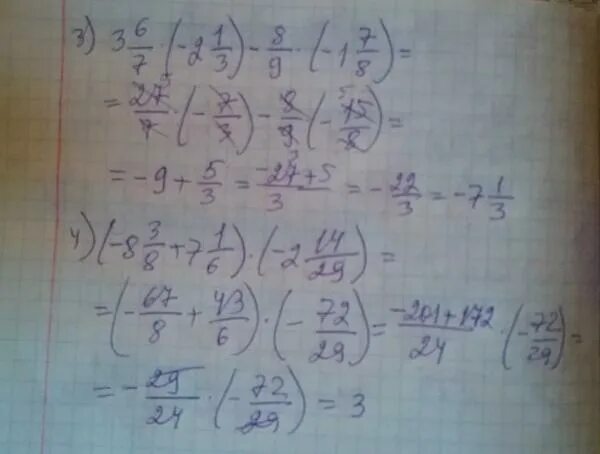 3) 3 6/7 · (-2 1/3) - 8/9 · (-1 7/8) =
= 27/7 · (-7/3) - 8/9 (-15/8) =
= -9 + 5/3 = (-27+5)/3 = -22/3 = -7 1/3
4) (-8 3/8 + 7 1/6) · (-2 14/29) =
= (-67/8 + 43/6) · (-72/29) = (-201+172)/24 · (-72/29) =
= -29/24 · (-72/29) = 3